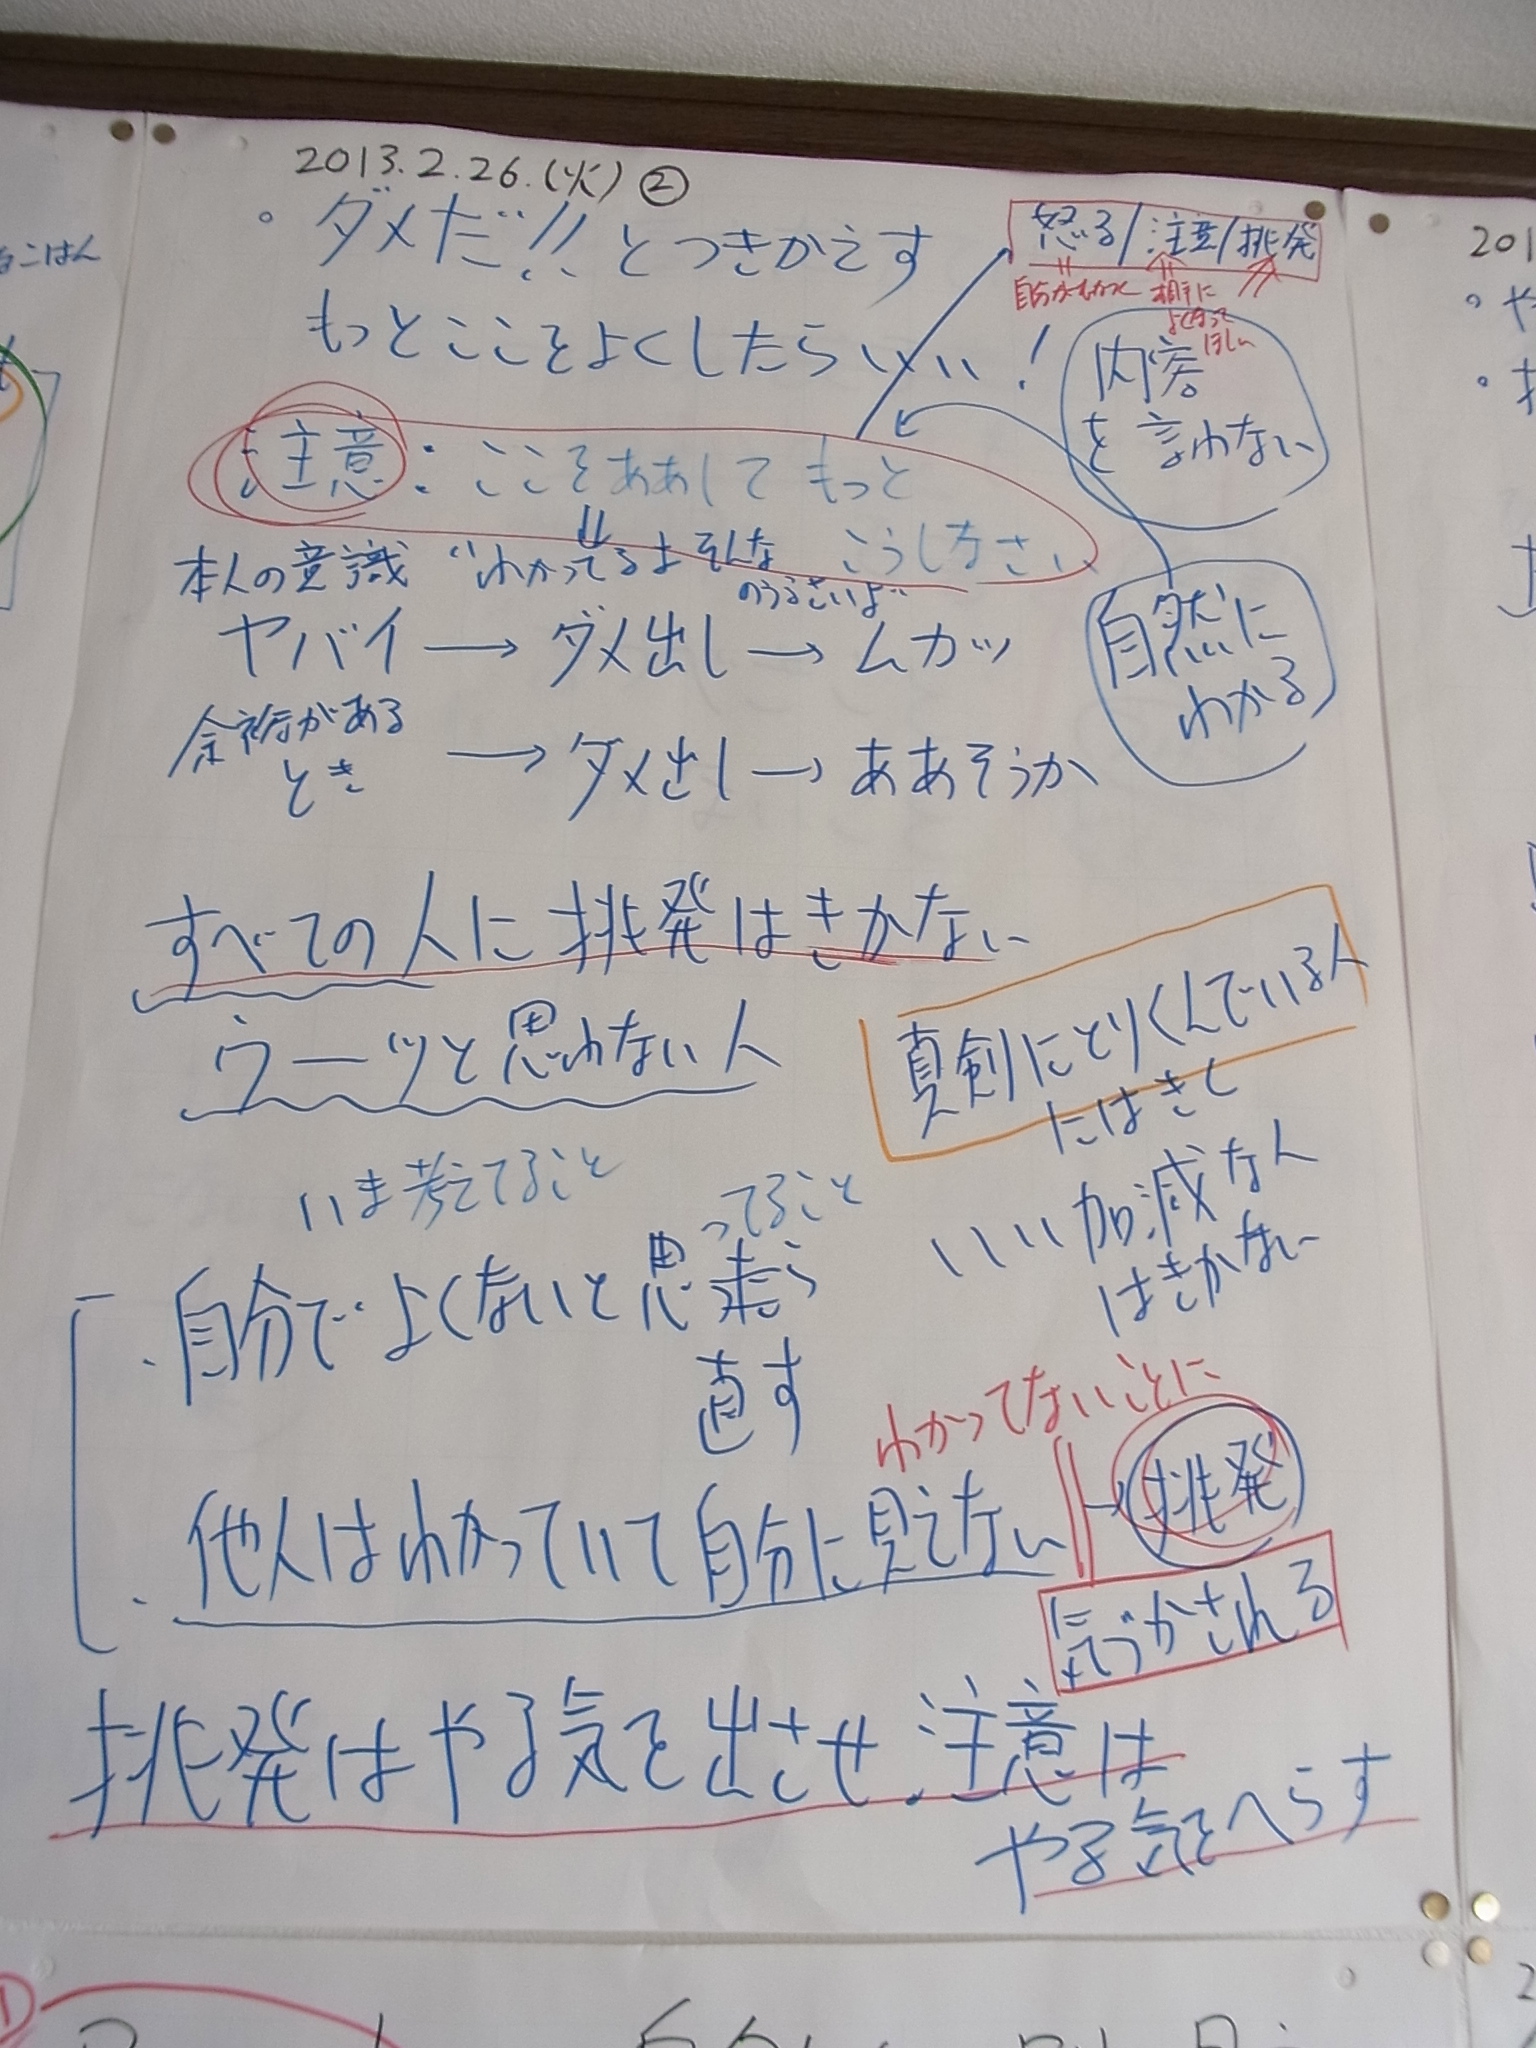 2013.2.26.(火) ②
・ダメだ!! とつきかえす
もっとここをよくしたらいい!
怒る/注意/挑発
相手に
よくなって
ほしい
内容
を言わない
注意:ここをああして もっと
こうしなさい
本人の意識 “わかってるよ そんな
のうるさいよ”
ヤバイ → ダメ出し → ムカッ
自然に
わかる
余裕がある
とき
→ ダメ出し → ああそうか
すべての人に挑発はきかない
ウーッと思わない人
真剣にとりくんでいる人
にはきく
いい加減な人
はきかない
いま考えてること
ってること
・自分でよくないと思
直す
わかってないことに
・他人はわかっていて自分に見えない → 挑発
気づかされる
挑発はやる気を出させ、注意は
やる気をへらす